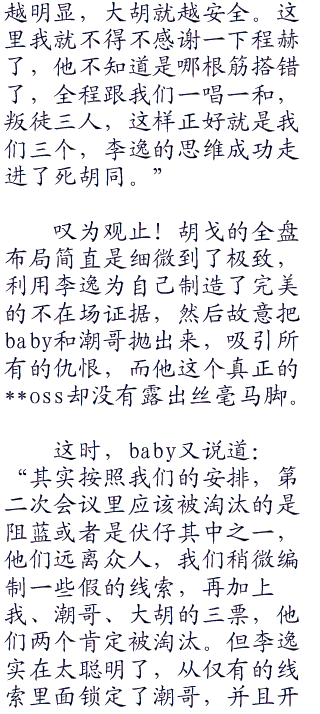 越明显，大胡就越安全。这
里我就不得不感谢一下程赫
了，他不知道是哪根筋搭错
了，全程跟我们一唱一和，
叛徒三人，这样正好就是我
们三个，李逸的思维成功走
进了死胡同。”
叹为观止！胡戈的全盘
布局简直是细微到了极致，
利用李逸为自己制造了完美
的不在场证据，然后故意把
baby和潮哥抛出来，吸引所
有的仇恨，而他这个真正的
**oss却没有露出丝毫马脚。
这时，baby又说道：
“其实按照我们的安排，第
二次会议里应该被淘汰的是
阻蓝或者是伏仔其中之一，
他们远离众人，我们稍微编
制一些假的线索，再加上
我、潮哥、大胡的三票，他
们两个肯定被淘汰。但李逸
实在太聪明了，从仅有的线
索里面锁定了潮哥，并且开